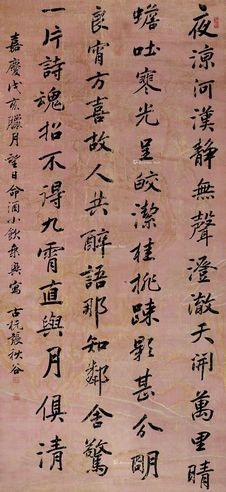 夜涼河漢靜無聲澄澈天開萬里晴
蟾吐寒光呈皎潔桂排疎影甚分明
良宵方喜故人共醉語那知鄰舍驚
一片詩魂招不得九霄直與月俱清
嘉慶戊亥臘月望日命酒小飲乘興寫 古杭張秋谷